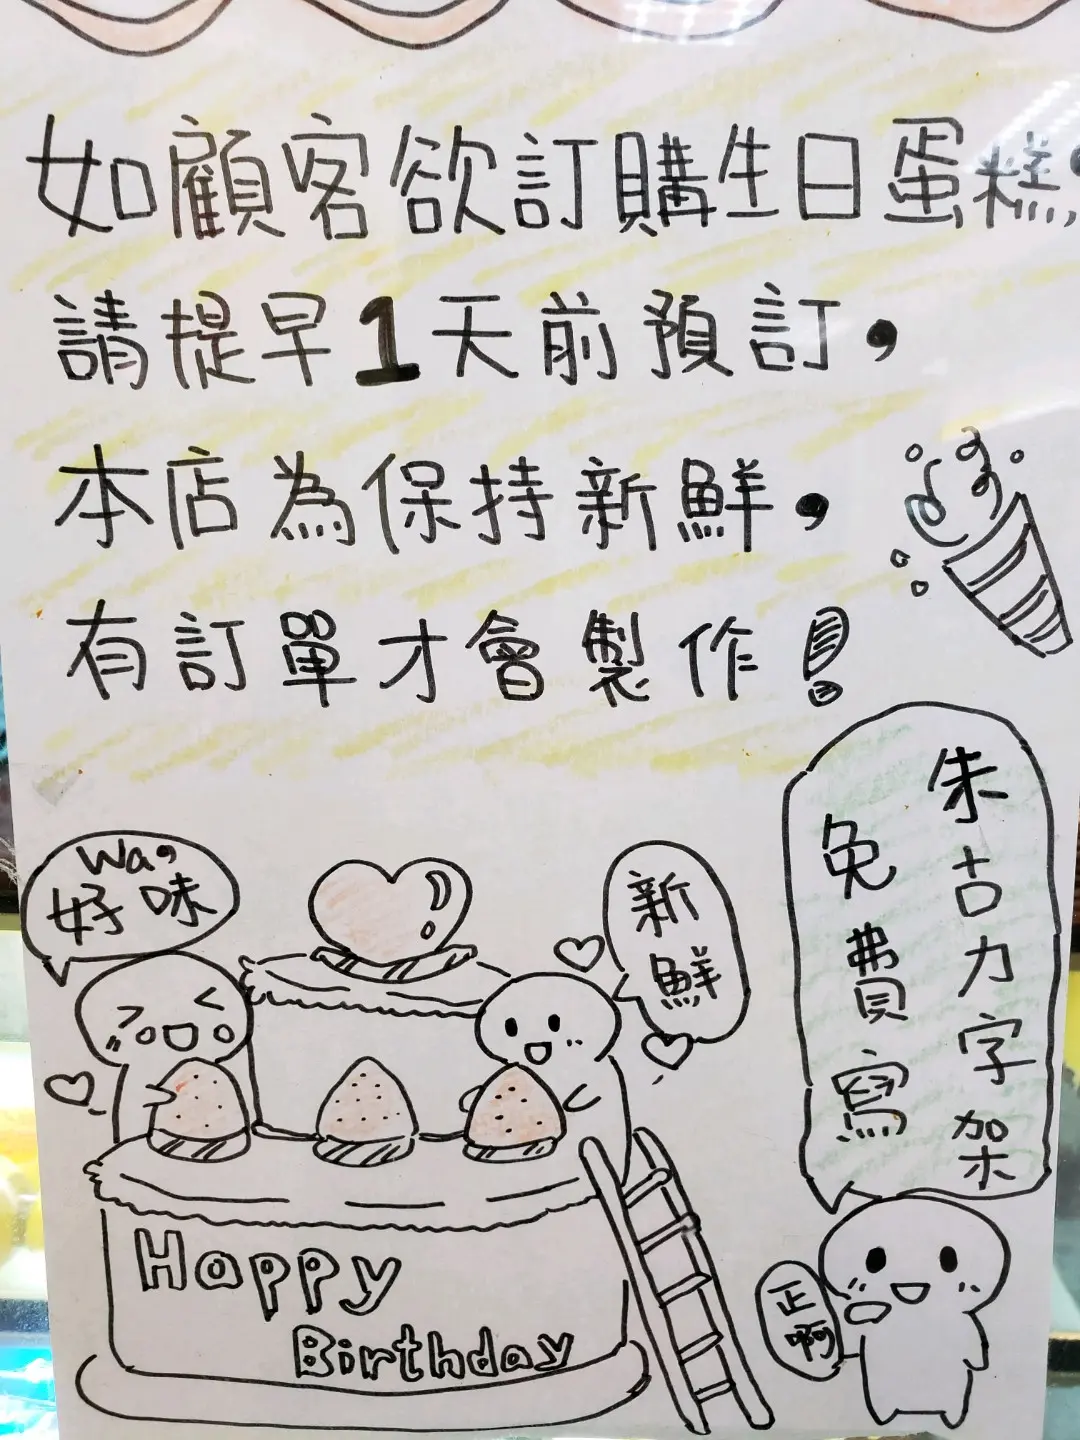 如顧客欲訂購生日蛋糕,
請提早1天前預訂,
本店為保持新鮮,
有訂單才會製作!
朱古力字架
免費寫
Wa,
好味
新
鮮
正
啊
Happy
Birthday